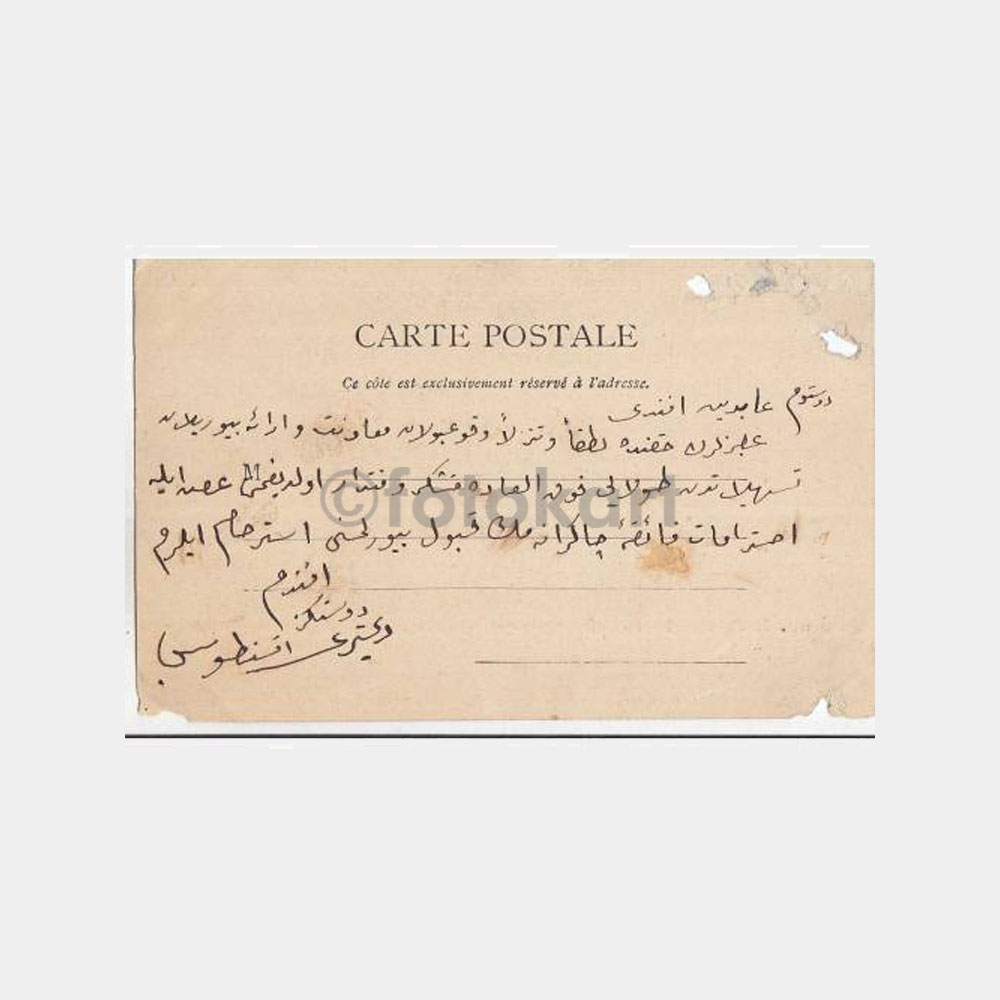 CARTE POSTALE
Ce côte est exclusivement réservé à l'adresse.
دوستوم عابدين افندى
عاجزلرى حقنده لطفاً وتنزلاً وقوعبولان معاونت و ارائه بيوريلان
تسهيلاتدن طولايى فوق العاده متشكر اولديغمى عرض ايله
احترامات فائقهٔ چاكرانه مك قبول بيورلمسنى استرحام ايلرم
افندم
دوستكز
©fotokart